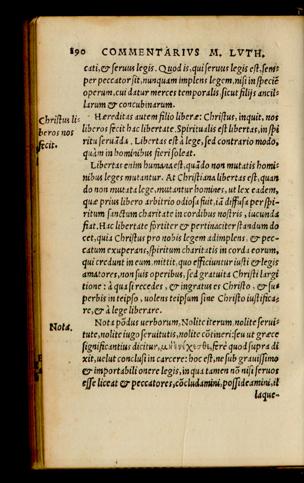 190 COMMENTARIVS M. LVTH.
cati, & seruus legis. Quod is, qui seruus legis est, sem-
per peccator sit, nunquam implens legem, nisi in speciē
operum, cui datur merces temporalis, sicut filijs ancil
larum & concubinarum.
Christus li
beros nos
fecit.
Hæreditas autem filio liberæ: Christus, inquit, nos
liberos fecit hac libertate. Spiritualis est libertas, in spi
ritu seruāda. Libertas est à lege, sed contrario modo,
quàm in hominibus fieri soleat.
Libertas enim humana est, quādo non mutatis homi
nibus leges mutantur. At Christiana libertas est, quan
do non mutata lege, mutantur homines, ut lex eadem,
quæ prius libero arbitrio odiosa fuit, iā diffusa per spi-
ritum sanctum charitate in cordibus nostris, iucunda
fiat. Hac libertate fortiter & pertinaciter standum do
cet, quia Christus pro nobis legem adimplens, & pec-
catum exuperans, spiritum charitatis in corda eorum,
qui credunt in eum, mittit, quo efficiuntur iusti & legis
amatores, non suis operibus, sed gratuita Christi largi
tione: à qua si recedes, & ingratus es Christo, & su-
perbis in teipso, uolens teipsum sine Christo iustifica-
re, & à lege liberare.
Nota.
Nota pōdus uerborum, Nolite iterum. nolite serui-
tute, nolite iugo seruitutis, nolite cōtineri: seu ut græce
significantius dicitur, ferè quod supra di
xit, uelut conclusi in carcere: hoc est, ne sub grauissimo
& importabili onere legis, in qua tamen nō nisi seruos
esse liceat & peccatores, cōcludamini, possideamini, il
laque-